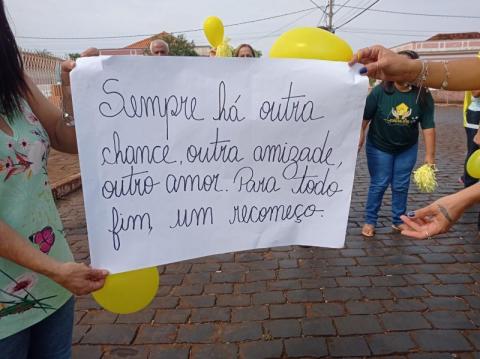 Sempre há outra
chance, outra amizade,
outro amor. Para todo
fim, um recomeço.